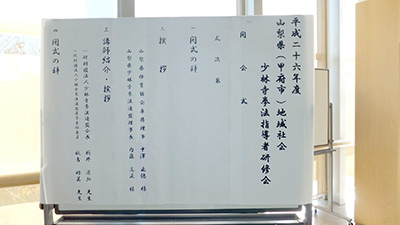 平成二十六年度
山梨県(甲府市)地域社会
少林寺拳法指導者研修会
開会式
式次第
一 開式の辞
二 挨拶
山梨県体育協会専務理事 中澤 正徳 様
山梨県少林寺拳法連盟理事長 内藤 様
三 講師紹介・挨拶
一般財団法人少林寺拳法連盟会長 先生
先生
四 閉式の辞